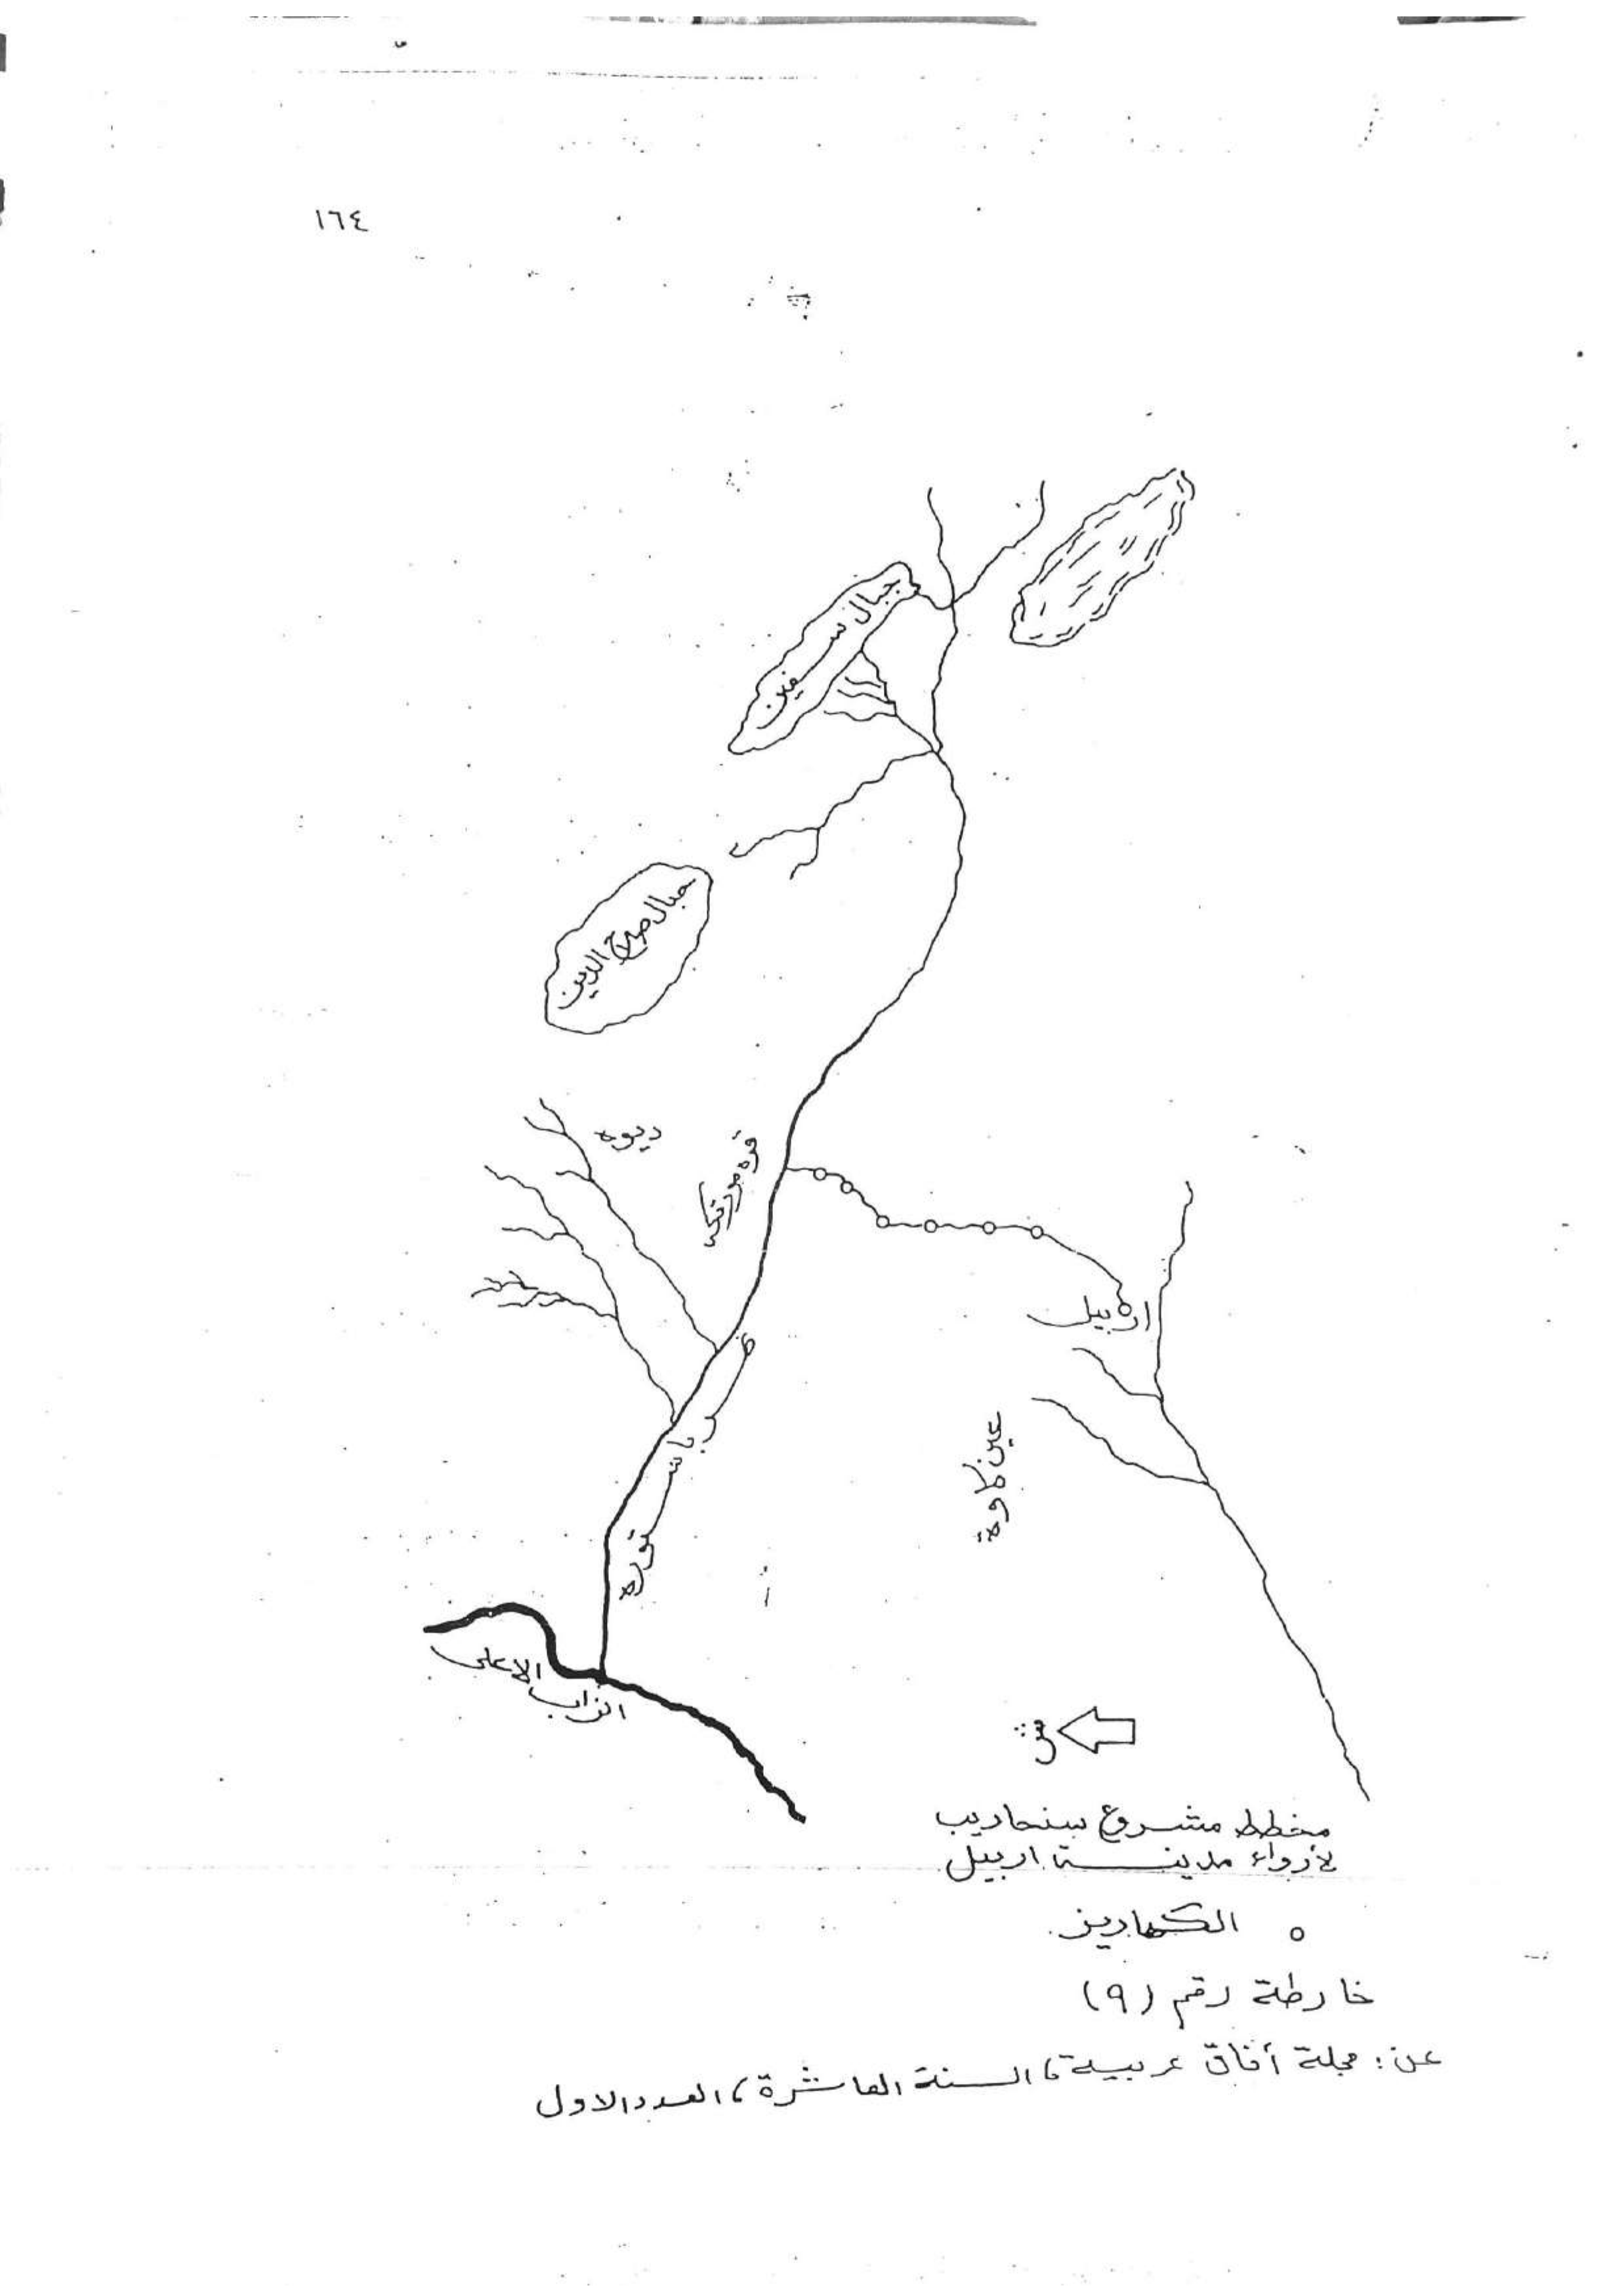 ١٦٤
جبال سفين
جبال صلاح الدين
ديوه
قره مورتكه
اربيل
باستورة
عين كاوة
الزاب الاعلى
ش
مخطط مشروع سنحاريب
لأرواء مدينة اربيل
الكهاريز
خارطة رقم (٩)
عن: مجلة أفاق عربية، السنة العاشرة، العدد الاول